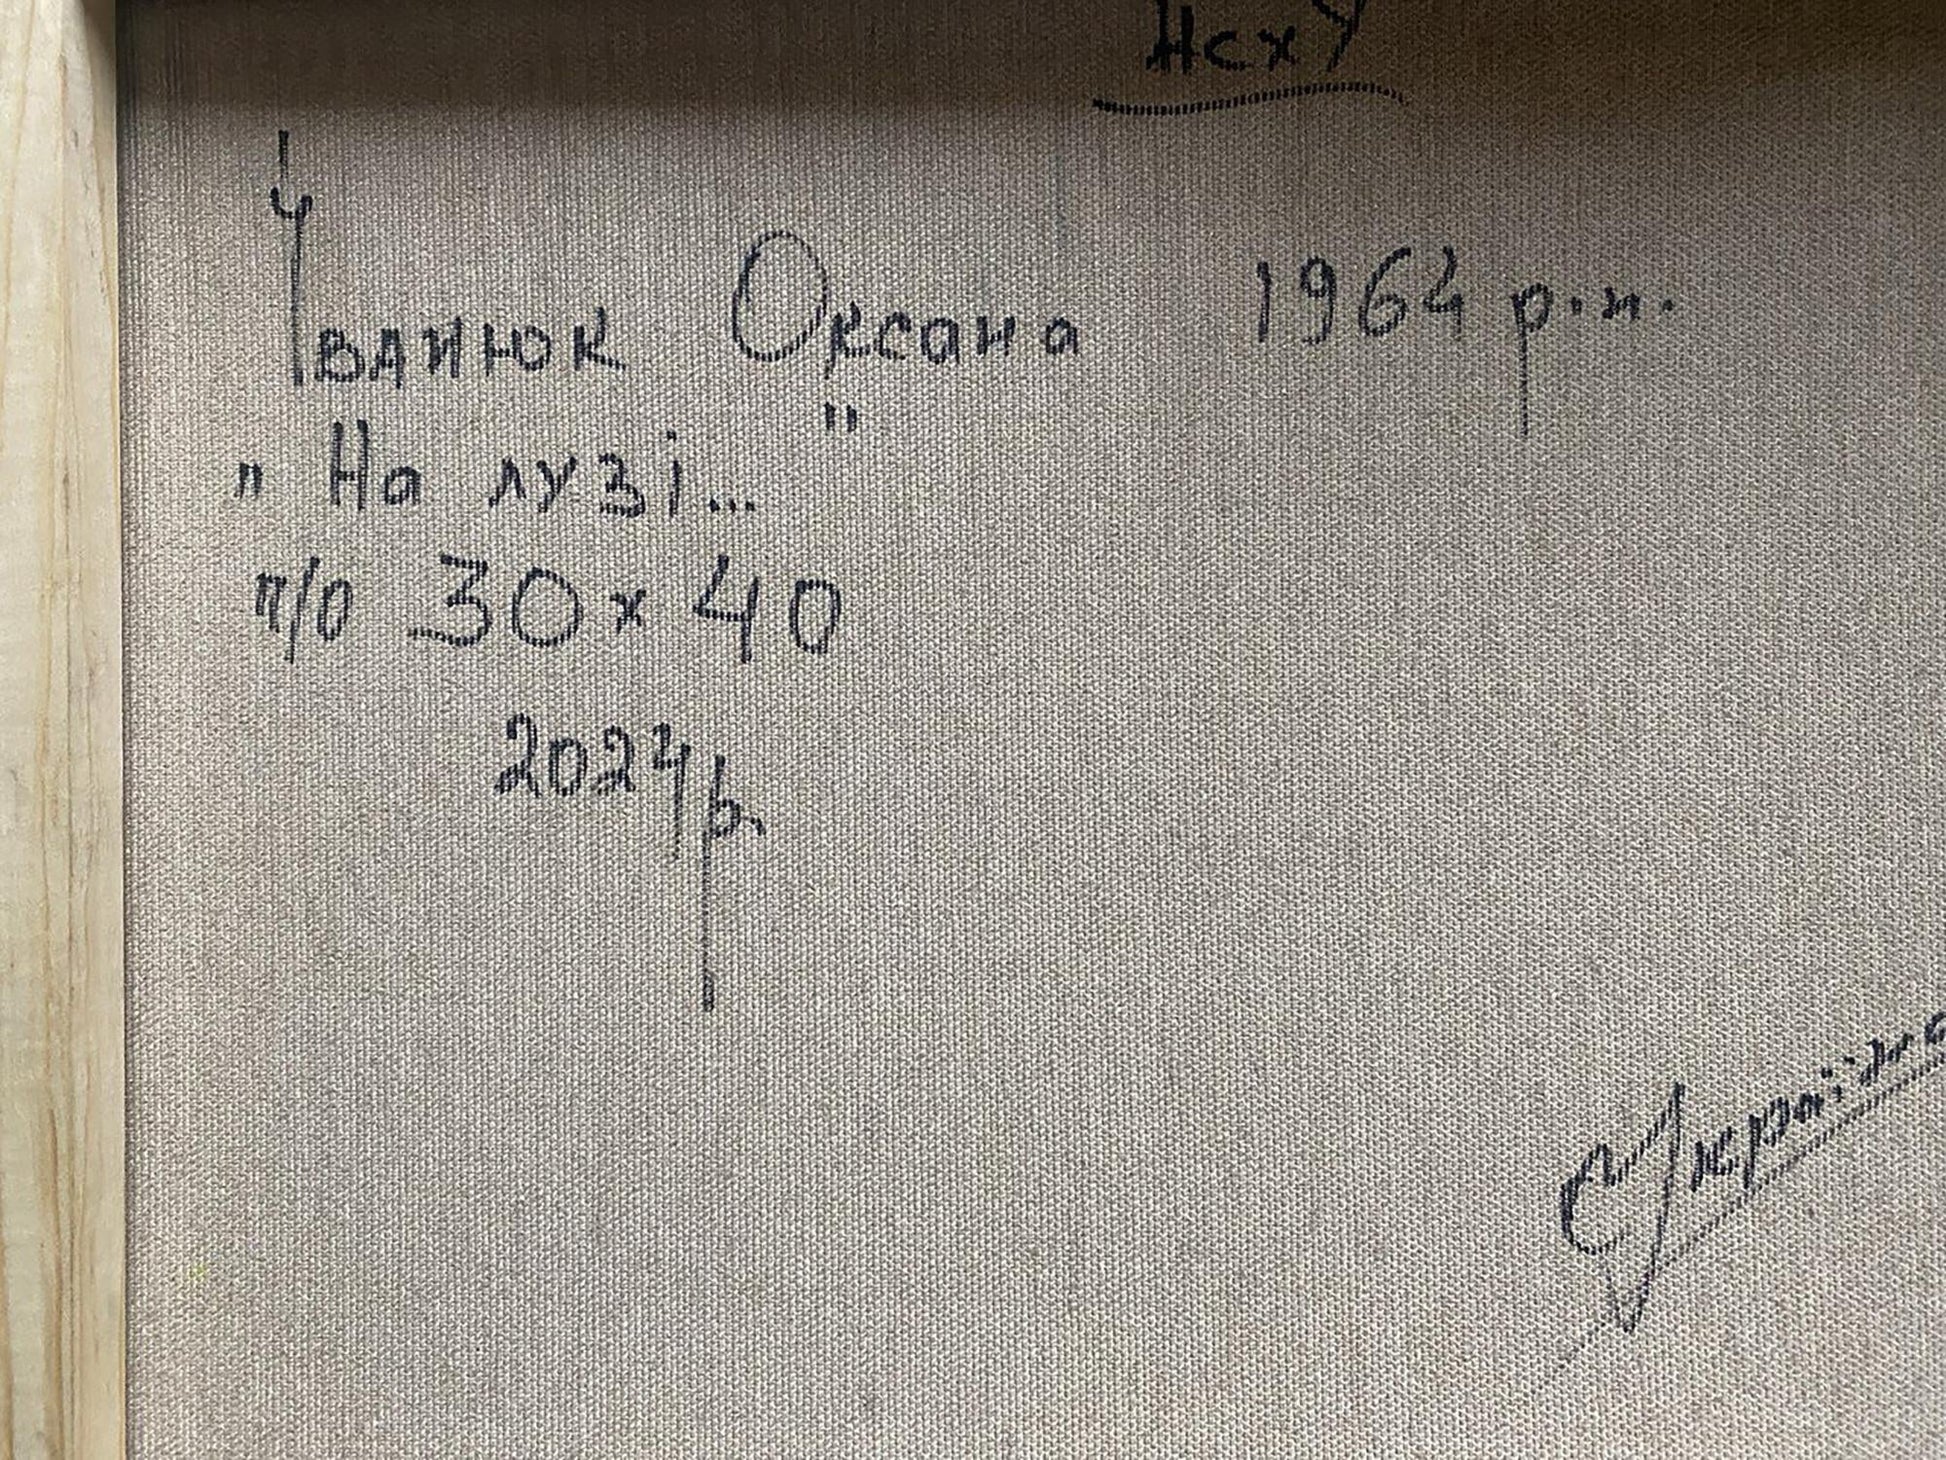 НСХУ
Іванюк Оксана 1964 р.н.
"На лузі..."
п/о 30 х 40
2024р.
Україна